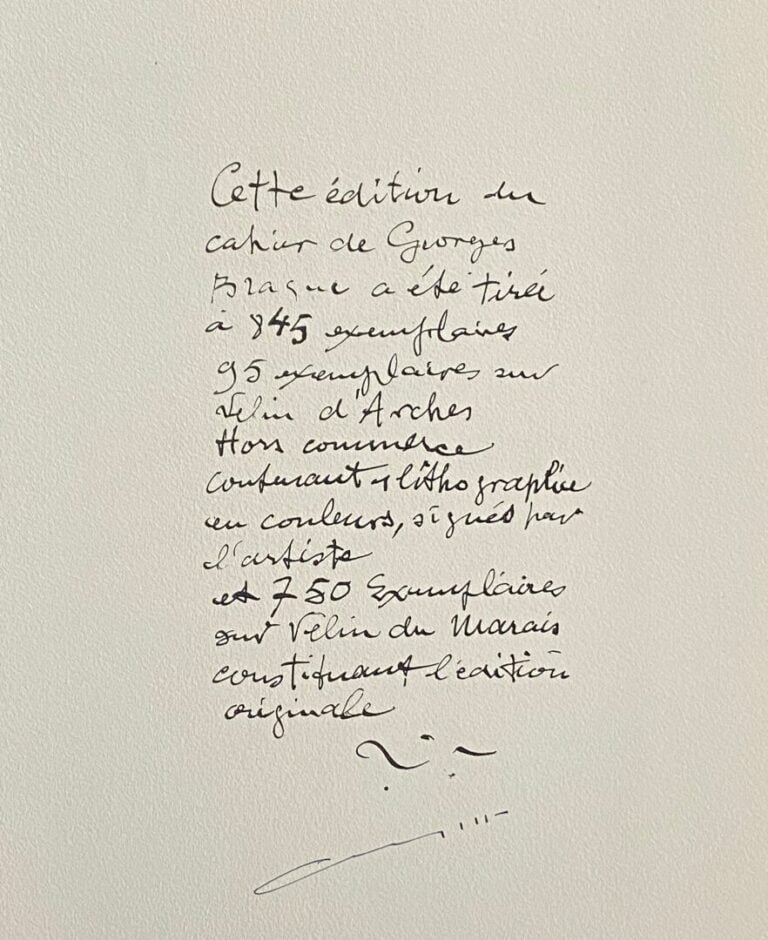 Cette édition du
cahier de Georges
Braque a été tirée
à 845 exemplaires
95 exemplaires sur
Vélin d'Arches
Hors commerce
contenant 1 lithographie
en couleurs, signés par
l'artiste
et 750 Exemplaires
sur Vélin du Marais
constituant l'édition
originale